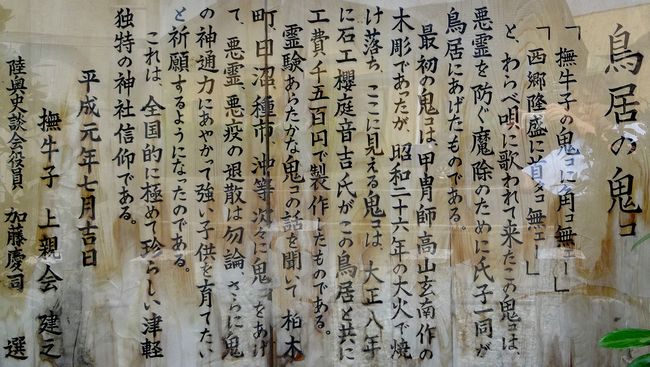 鳥居の鬼コ
「撫牛子の鬼コに角コ無ェー」
「西郷隆盛に首タコ無ェ」
と、わらべ唄に歌われて来たこの鬼コは、
悪霊を防ぐ魔除のために氏子一同が
鳥居にあげたものである。
最初の鬼コは、甲冑師高山玄南作の
木彫であったが、昭和二十六年の大火で焼
け落ち、ここに見える鬼コは、大正八年
に石工櫻庭音吉氏がこの鳥居と共に
工費、千五百円で製作したものである。
霊験あらたかな鬼コの話を聞いて柏木
町、田沼、種市、沖等次々に鬼コをあげ
て、悪霊、悪疫の退散は勿論、さらに鬼
の神通力にあやかって強い子供を育てたい
と祈願するようになったのである。
これは、全国的に極めて珍らしい津軽
独特の神社信仰である。
平成元年七月吉日
撫牛子 上親会 建之
陸奥史談会役員 加藤慶司 選